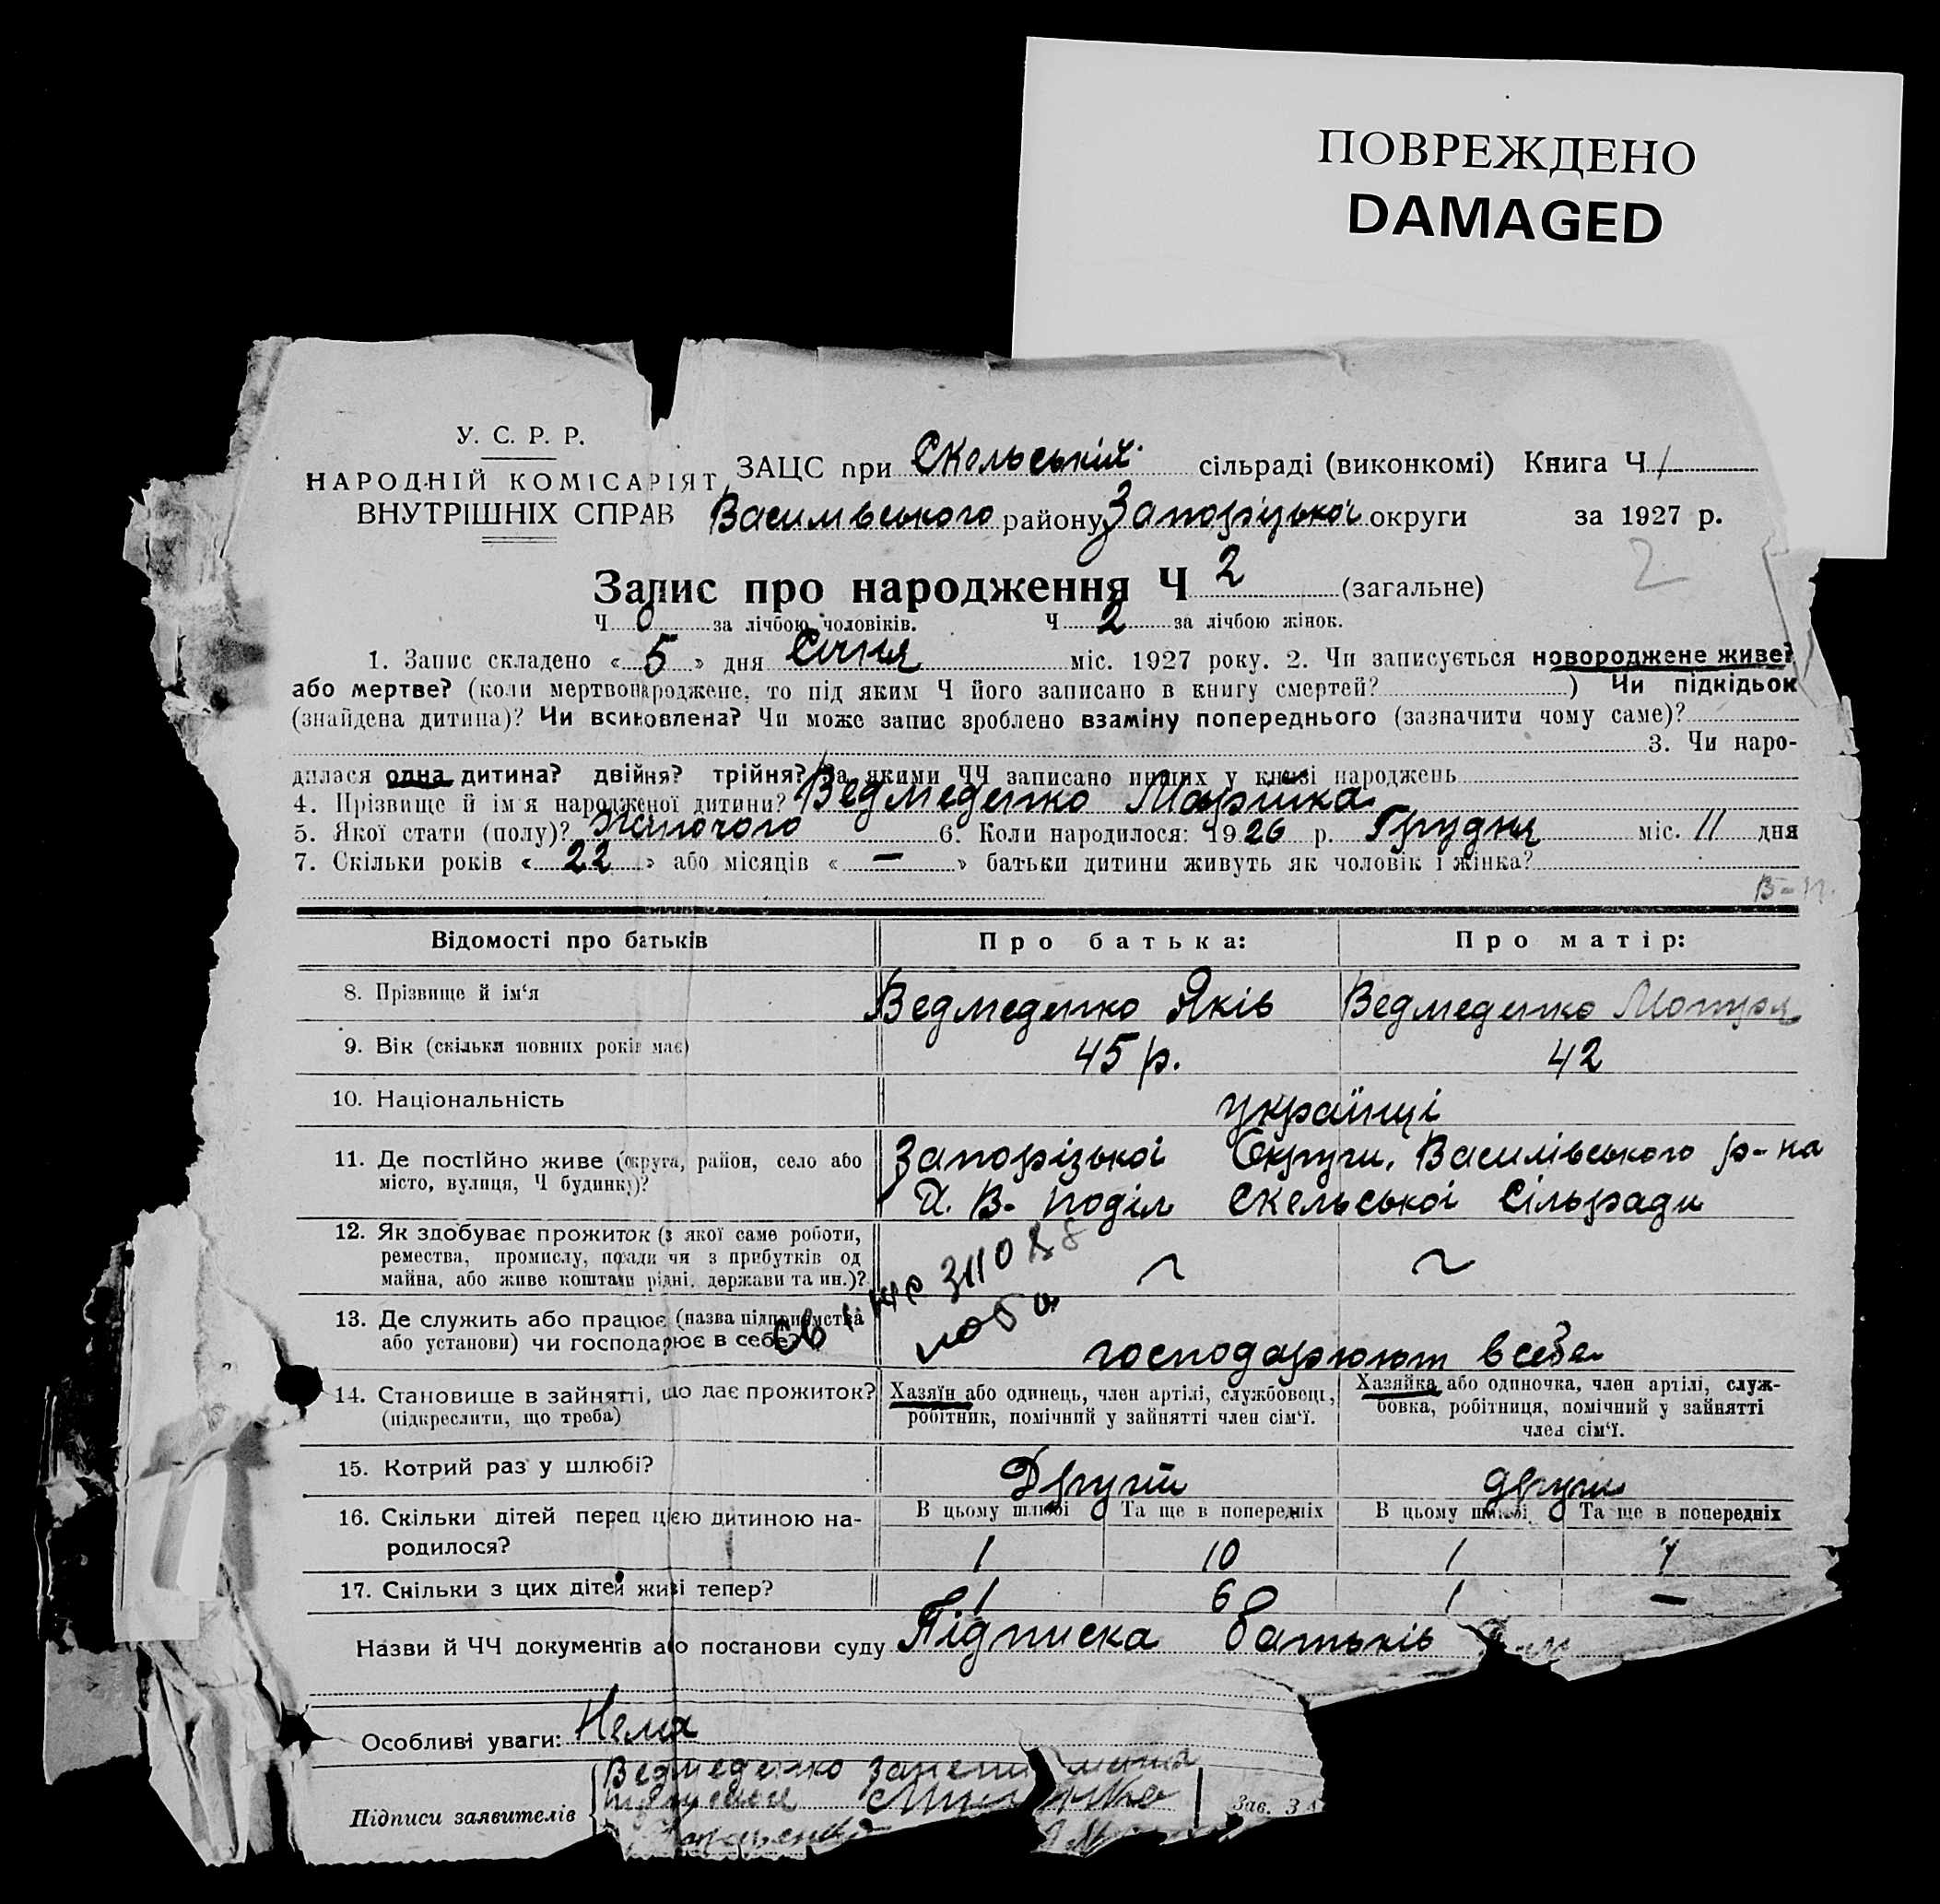 ПОВРЕЖДЕНО
DAMAGED
У. С. Р. Р.
НАРОДНІЙ КОМІСАРІЯТ
ВНУТРІШНІХ СПРАВ
ЗАЦС при Скольській сільраді (виконкомі) Книга Ч 1
Василівського району Запорізької округи за 1927 р.
2
Запис про народження Ч 2 (загальне)
Ч 0 за лічбою чоловіків. Ч 2 за лічбою жінок.
1. Запис складено « 5 » дня Січня міс. 1927 року. 2. Чи записується новороджене живе?
або мертве? (коли мертвонароджене, то під яким Ч його записано в книгу смертей? ) Чи підкідьок
(знайдена дитина)? Чи всиновлена? Чи може запис зроблено взаміну попереднього (зазначити чому саме)?
3. Чи наро-
дилася одна дитина? двійня? трійня? За якими ЧЧ записано инших у книзі народжень
4. Прізвище й ім'я народженої дитини? Ведмеденко Марийка
5. Якої стати (полу)? Жиночого 6. Коли народилося: 1926 р. Грудня міс. 11 дня
7. Скільки років « 22 » або місяців « — » батьки дитини живуть як чоловік і жінка?
Відомості про батьків Про батька: Про матір:
8. Прізвище й ім'я Ведмеденко Яків Ведмеденко Мотря
9. Вік (скільки повних років має) 45 р. 42
10. Національність українці
11. Де постійно живе (округа, район, село або Запорізької Округи, Василівського р-на
місто, вулиця, Ч будинку)? поділ Скельської Сільради
12. Як здобуває прожиток (з якої саме роботи,
ремества, промислу, посади чи з прибутків од
майна, або живе коштами рідні, держави та ин.)?
13. Де служить або працює (назва підприємства
або установи) чи господарює в себе? господарюют в себе
14. Становище в зайнятті, що дає прожиток? Хазяїн або одинець, член артілі, службовець, Хазяйка або одиночка, член артілі, служ-
(підкреслити, що треба) робітник, помічний у зайнятті член сім'ї. бовка, робітниця, помічний у зайнятті
член сім'ї.
15. Котрий раз у шлюбі? Другий други
16. Скільки дітей перед цією дитиною на- В цьому шлюбі Та ще в попередніх В цьому шлюбі Та ще в попередніх
родилося? 1 10 1
17. Скільки з цих дітей живі тепер? 1 6 1 —
Назви й ЧЧ документів або постанови суду Підписка батьків
Особливі уваги: Нема
Ведмеденко
Підписи заявителів Зав. ЗА